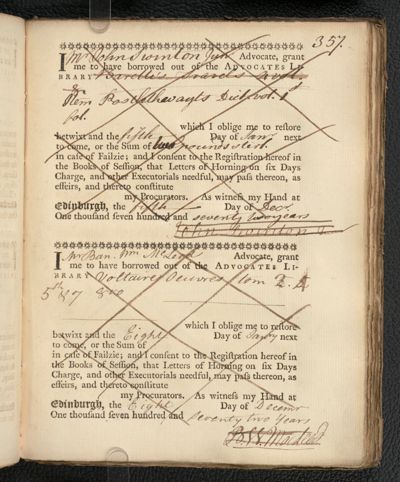 357.
I Mr John Swinton Junr Advocate, grant
me to have borrowed out of the ADVOCATES LI-
BRARY travels
Item Postlethwayts Dict. vol. 1st
fol.
which I oblige me to restore
betwixt and the fifth Day of Jany next
to come, or the Sum of two pounds sterl.
in case of Failzie; and I consent to the Registration hereof in
the Books of Session, that Letters of Horning on six Days
Charge, and other Executorials needful, may pass thereon, as
effeirs, and thereto constitute
my Procurators. As witness my Hand at
Edinburgh, the fifth Day of Decr.
One thousand seven hundred and seventy two years
John Swinton
I Mr Ban. Wm McLeod Advocate, grant
me to have borrowed out of the ADVOCATES LI-
BRARY Voltaire Oeuvres tom 2. 4
5th & 7 8vo
which I oblige me to restore
betwixt and the Eight Day of Jany next
to come, or the Sum of
in case of Failzie; and I consent to the Registration hereof in
the Books of Session, that Letters of Horning on six Days
Charge, and other Executorials needful, may pass thereon, as
effeirs, and thereto constitute
my Procurators. As witness my Hand at
Edinburgh, the Eight Day of Decemr
One thousand seven hundred and seventy two years
Macleod